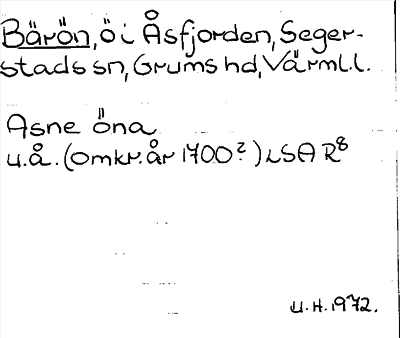 Bärön, ö i Åsfjorden, Seger-
stads sn, Grums hd, Värml.l.
Asne öna
u.å. (omkr. år 1700?) LSA R8
U.H. 1972.